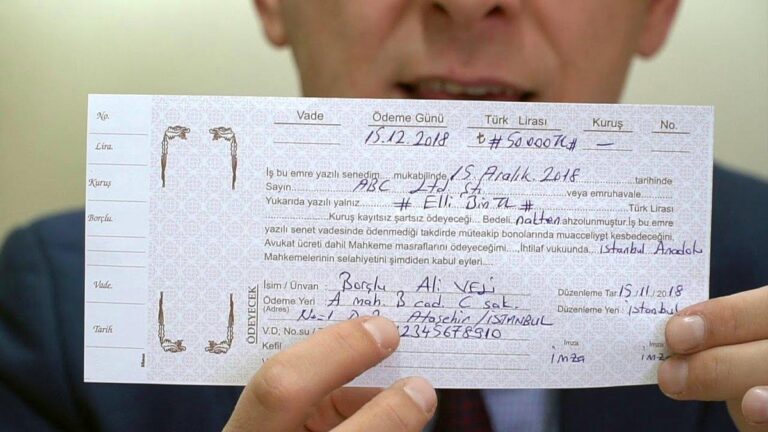 No.
Lira.
Kuruş
Borçlu.
Vade.
Tarih
Vade Ödeme Günü Türk Lirası Kuruş No.
15.12.2018 ₺ # 50.000TL # —
İş bu emre yazılı senedim.... mukabilinde 15 Aralık 2018 tarihinde
Sayın ABC Ltd. Şti veya emruhavale....
Yukarıda yazılı yalnız # Elli Bin TL # Türk Lirası
Kuruş kayıtsız şartsız ödeyeceği... Bedeli nakten ahzolunmuştur. İş bu emre
yazılı senet vadesinde ödenmediği takdirde müteakip bonolarında muacceliyet kesbedeceğini,
Avukat ücreti dahil Mahkeme masraflarını ödeyeceğimi..., İhtilaf vukuunda, istanbul Anadolu
Mahkemelerinin selahiyetini şimdiden kabul eyleri....
ÖDEYECEK
İsim / Ünvan : Borçlu Ali VELİ
Ödeme Yeri : A mah. B cad. C sok.
(Adres) No=1 Ataşehir/İSTANBUL
V.D, No.su : 12345678910
Kefil
Düzenleme Tar. 15.11./2018
Düzenleme Yeri : istanbul
İmza İmza
imza imza